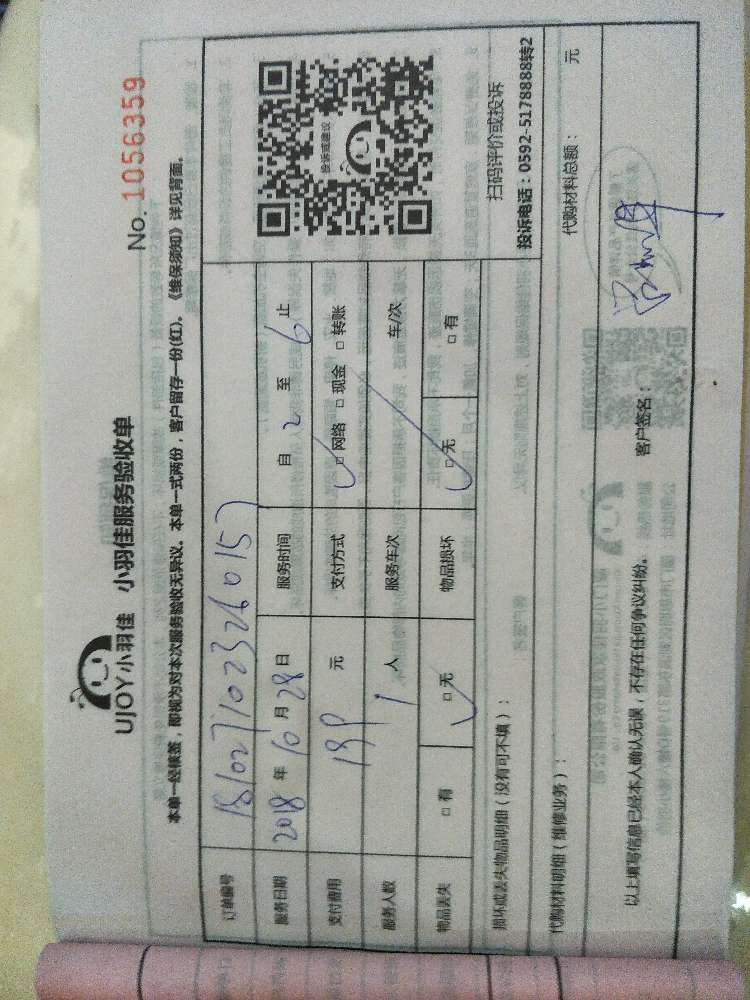 UJOY小羽佳 小羽佳服务验收单
No. 1056359
本单一经候签，即视为对本次服务验收无异议。本单一式两份，客户留存一份(红)。《维保须知》详见背面。
订单编号
服务日期 2018 年 10 月 28 日 服务时间 自 2 至 6 止
支付费用 元 支付方式 □网络 □现金 □转账
服务人数 1 人 服务车次 车/次
物品丢失 □有 □无 物品损坏 □无 □有
投诉或建议
扫码评价或投诉
投诉电话：0592-5178888转2
损坏或丢失物品明细（没有可不填）：
代购材料明细（维修业务）： 代购材料总额： 元
以上填写信息已经本人确认无误，不存在任何争议纠纷。 客户签名：